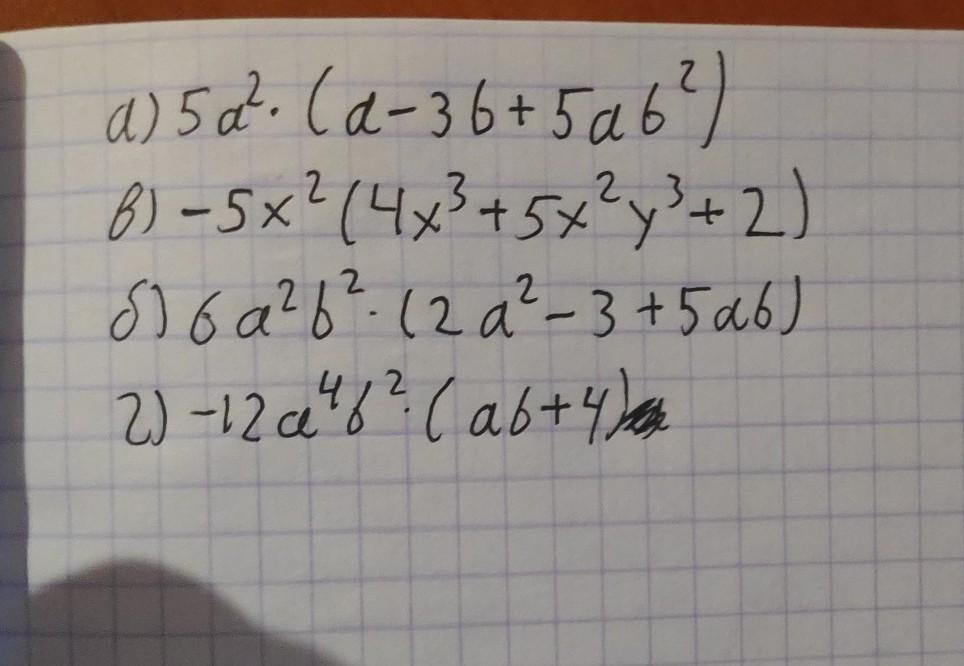 а) 5a²·(a-3b+5ab²)
в) -5x²(4x³+5x²y³+2)
б) 6a²b²·(2a²-3+5ab)
г) -12a⁴b²·(ab+4)